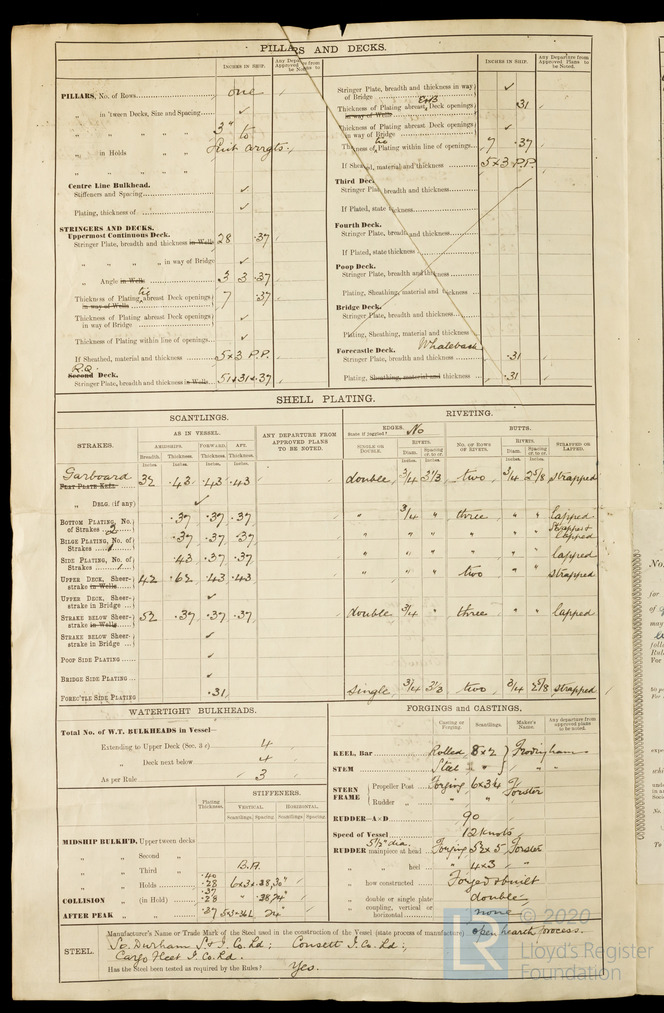 PILLARS AND DECKS.
INCHES IN SHIP.
Any Departure from Approved Plans to be Noted.
PILLARS, No. of Rows one
„ in 'tween Decks, Size and Spacing ✓
„ „ „ „ 3" to
„ in Holds „ Suit arrgts.
„ „ „ „
Centre Line Bulkhead.
Stiffeners and Spacing ✓
Plating, thickness of ✓
STRINGERS AND DECKS.
Uppermost Continuous Deck.
Stringer Plate, breadth and thickness in Wells 28 .37
„ „ „ „ in way of Bridge ✓
„ Angle in Wells 3 3 .37
Thickness of Plating tie abreast Deck openings in way of Wells 7 .37
Thickness of Plating abreast Deck openings in way of Bridge ✓
Thickness of Plating within line of openings ✓
If Sheathed, material and thickness 5x3 P.P.
R.Q.
Second Deck.
Stringer Plate, breadth and thickness in Wells 51x31x.37
INCHES IN SHIP.
Any Departure from Approved Plans to be Noted.
Stringer Plate, breadth and thickness in way of Bridge ✓
Thickness of Plating abreast Deck openings in way of Wells .31
Thickness of Plating abreast Deck openings in way of Bridge ✓
Thickness of Plating within line of openings tie 7 .37
If Sheathed, material and thickness 5x3 P.P.
Third Deck.
Stringer Plate, breadth and thickness
If Plated, state thickness
Fourth Deck.
Stringer Plate, breadth and thickness
If Plated, state thickness
Poop Deck.
Stringer Plate, breadth and thickness
Plating, Sheathing, material and thickness
Bridge Deck.
Stringer Plate, breadth and thickness
Plating, Sheathing, material and thickness
Forecastle Deck. Whaleback
Stringer Plate, breadth and thickness .31
Plating, Sheathing, material and thickness .31
SHELL PLATING.
SCANTLINGS.
RIVETING.
STRAKES.
AS IN VESSEL.
AMIDSHIPS. FORWARD. AFT.
Breadth. Thickness. Thickness. Thickness.
Inches. Inches. Inches. Inches.
ANY DEPARTURE FROM APPROVED PLANS TO BE NOTED.
EDGES. No
State if joggled?
BUTTS.
SINGLE OR DOUBLE.
RIVETS.
Diam. Spacing cr. to cr.
Inches. Inches.
No. OF ROWS OF RIVETS.
RIVETS.
Diam. Spacing cr. to cr.
Inches. Inches.
STRAPPED OR LAPPED.
Garboard
FLAT PLATE KEEL 32 .43 .43 .43 double 3/4 3 1/3 two 3/4 2 5/8 strapped
„ DBLG. (if any) ✓
BOTTOM PLATING, No. of Strakes 2 .37 .37 .37 „ 3/4 „ three „ „ lapped
BILGE PLATING, No. of Strakes 1 .37 .37 .37 „ „ „ „ „ „ strapped lapped
SIDE PLATING, No. of Strakes .43 .37 .37 „ „ „ „ „ „ lapped
UPPER DECK, Sheerstrake in Wells 42 .62 .43 .43 „ „ „ two „ „ strapped
UPPER DECK, Sheerstrake in Bridge ✓
STRAKE BELOW Sheerstrake in Wells 52 .37 .37 .37 double 3/4 „ three „ „ lapped
STRAKE BELOW Sheerstrake in Bridge ✓
POOP SIDE PLATING ✓
BRIDGE SIDE PLATING ✓
FOREC'TLE SIDE PLATING .31 Single 3/4 3 1/3 two 3/4 2 5/8 strapped
WATERTIGHT BULKHEADS.
Total No. of W.T. BULKHEADS in Vessel—
Extending to Upper Deck (Sec. 3 c) 4
„ Deck next below 4
As per Rule 3
Plating Thickness.
STIFFENERS.
VERTICAL. HORIZONTAL.
Scantlings. Spacing. Scantlings. Spacing.
MIDSHIP BULKH'D, Upper tween decks
„ „ Second „
„ „ Third „ B.A.
„ „ Holds .40 .28 6x3x.38, 30"
COLLISION „ (in Hold) .37 .28 „ .38, 24"
AFTER PEAK „ „ .27 24"
FORGINGS and CASTINGS.
Casting or Forging. Scantlings. Maker's Name. Any departure from approved plans to be noted.
KEEL, Bar Rolled 8x2 Frodingham
STEM Steel „ „ „ „
STERN FRAME
Propeller Post Forging 6x3 1/4 Forster
Rudder „ „ „
RUDDER—A×D 90
Speed of Vessel 12 knots
5 1/2" dia.
RUDDER mainpiece at head Forging 5 1/2 x 5 Forster
„ „ heel „ 4x3 „
„ how constructed Forged & built
„ double or single plate double
„ coupling, vertical or horizontal none
STEEL.
Manufacturer's Name or Trade Mark of the Steel used in the construction of the Vessel (state process of manufacture) open hearth process.
So. Durham S & I. Co. Ld; Consett I. Co. Ld;
Cargo Fleet I. Co. Ld.
Has the Steel been tested as required by the Rules? Yes.
© 2020
Lloyd's Register
Foundation
LR